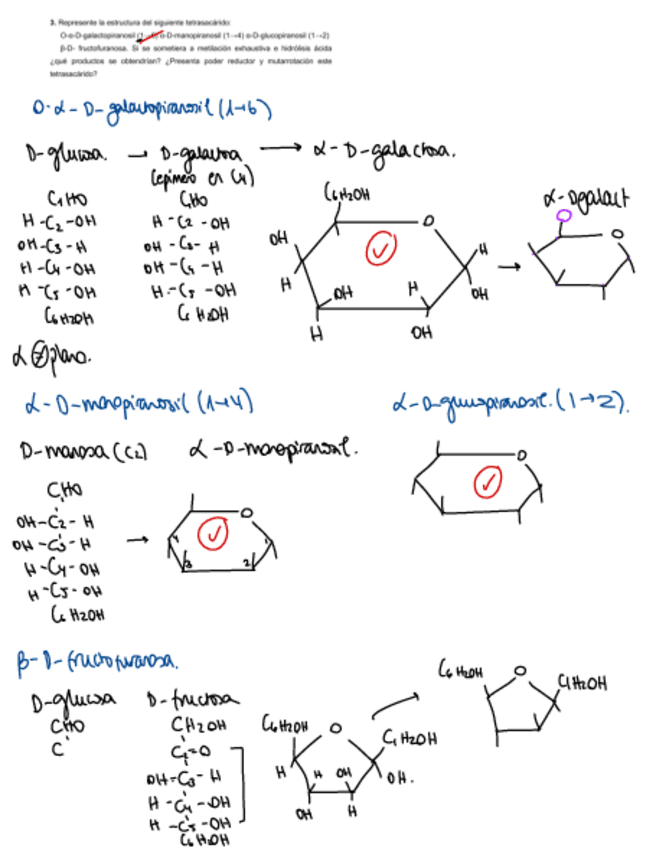 3. Represente la estructura del siguiente tetrasacárido:
O-α-D-galactopiranosil (1→6) α-D-manopiranosil (1→4) α-D-glucopiranosil (1→2)
β-D- fructofuranosa. Si se sometiera a metilación exhaustiva e hidrólisis ácida
¿qué productos se obtendrían? ¿Presenta poder reductor y mutarrotación este
tetrasacárido?
O-α-D-galactopiranosil (1→6)
D-glucosa. → D-galactosa → α-D-galactosa.
(epímero en C4)
C1HO CHO C6H2OH α-Dgalact
H-C2-OH H-C2-OH O O O
OH-C3-H OH-C3-H OH H
H-C4-OH OH-C4-H H OH H OH
H-C5-OH H-C5-OH H OH
C6H2OH C6H2OH
α plano.
α-D-manopiranosil (1→4) α-D-glucopiranosil. (1→2).
D-manosa (C2) α-D-manopiranosil.
CHO O
OH-C2-H O
OH-C3-H 4 1
H-C4-OH → 3 2
H-C5-OH
C6H2OH
β-D-fructofuranosa.
D-glucosa D-fructosa C6H2OH O C1H2OH
CHO CH2OH C6H2OH O C1H2OH
C C=O
OH-C3-H H H OH OH.
H-C4-OH OH H
H-C5-OH
C6H2OH